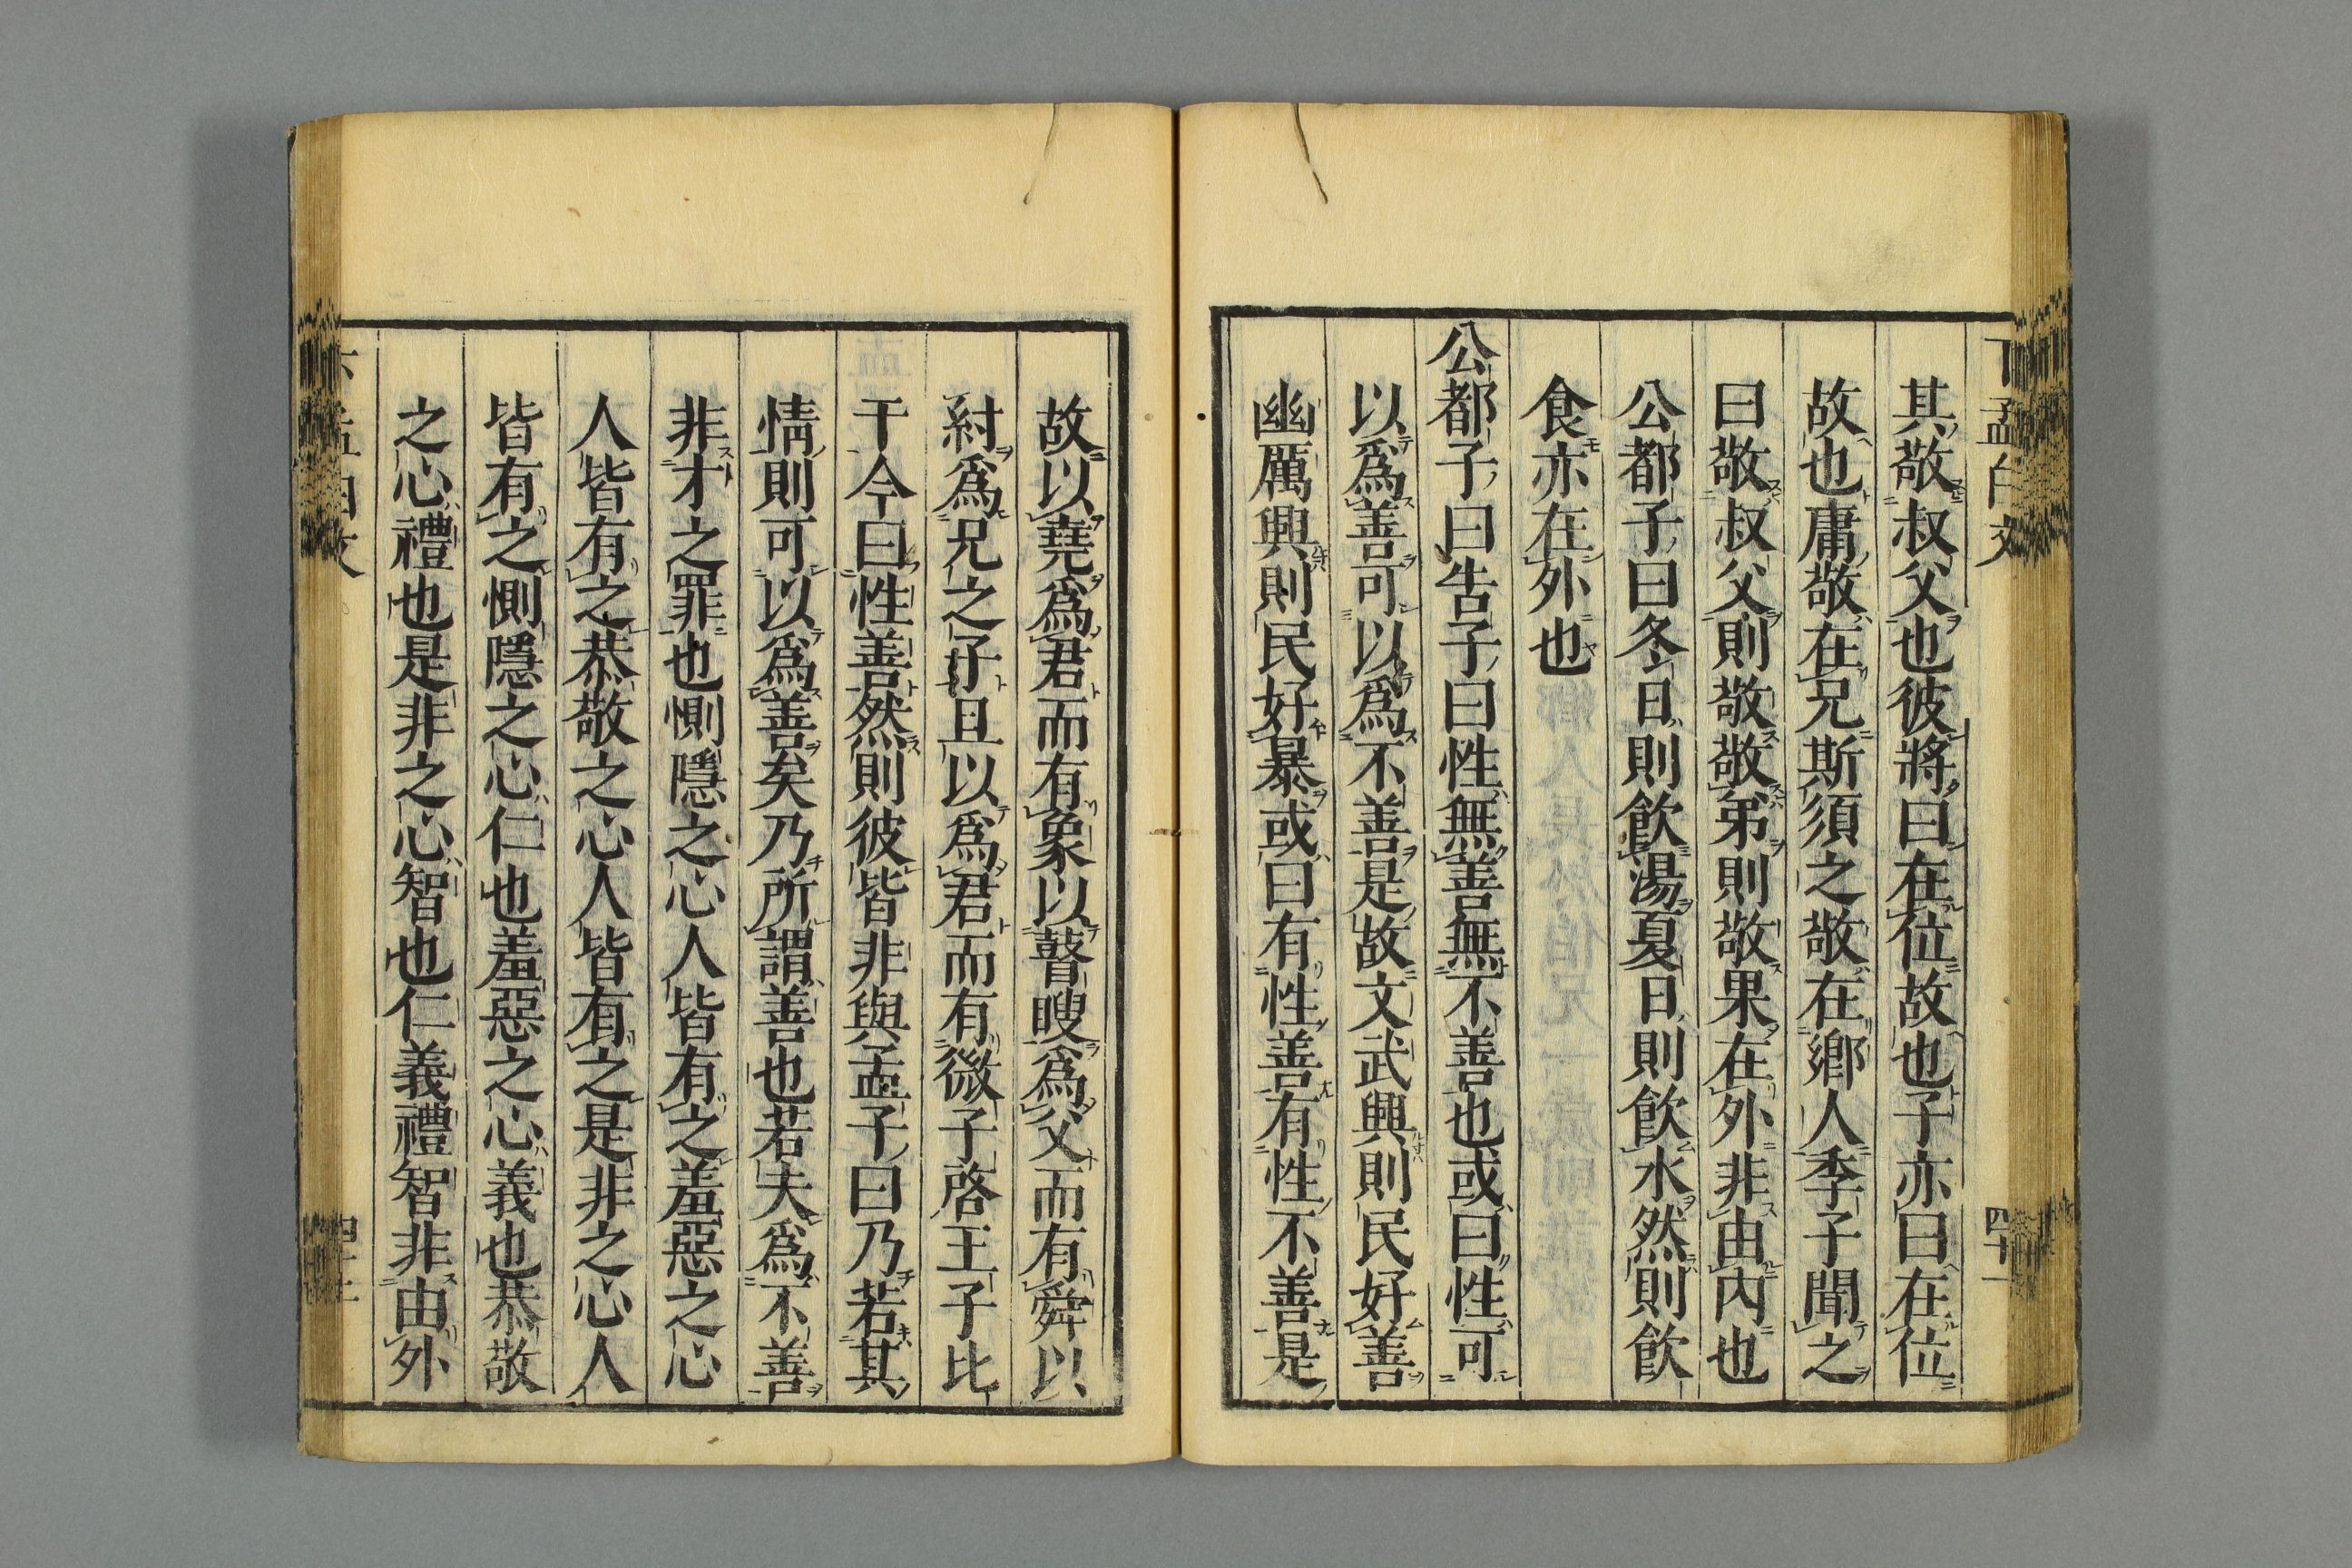 其敬叔父也彼將曰在位故也子亦曰在位
故也庸敬在兄斯須之敬在鄉人季子聞之
曰敬叔父則敬敬弟則敬果在外非由内也
公都子曰冬日則飲湯夏日則飲水然則飲
食亦在外也
公都子曰告子曰性無善無不善也或曰性可
以爲善可以爲不善是故文武興則民好善
幽厲興則民好暴或曰有性善有性不善是
故以堯爲君而有象以瞽瞍爲父而有舜以
紂爲兄之子且以爲君而有微子啓王子比
干今曰性善然則彼皆非與孟子曰乃若其
情則可以爲善矣乃所謂善也若夫爲不善
非才之罪也惻隱之心人皆有之羞惡之心
人皆有之恭敬之心人皆有之是非之心人
皆有之惻隱之心仁也羞惡之心義也恭敬
之心禮也是非之心智也仁義禮智非由外